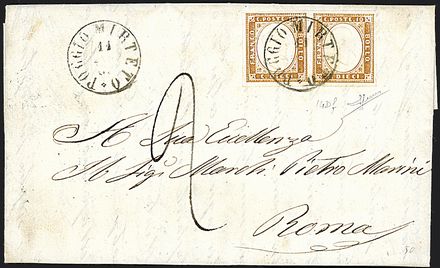 POGGIO MIRTETO
11
POGGIO MIRTETO
FRANCO C. POSTE IO BOLLO C. DIECI
FRANCO C. POSTE IO BOLLO C. DIECI
2
A Sua Eccellenza
Il Sigr March Pietro Marini
Roma